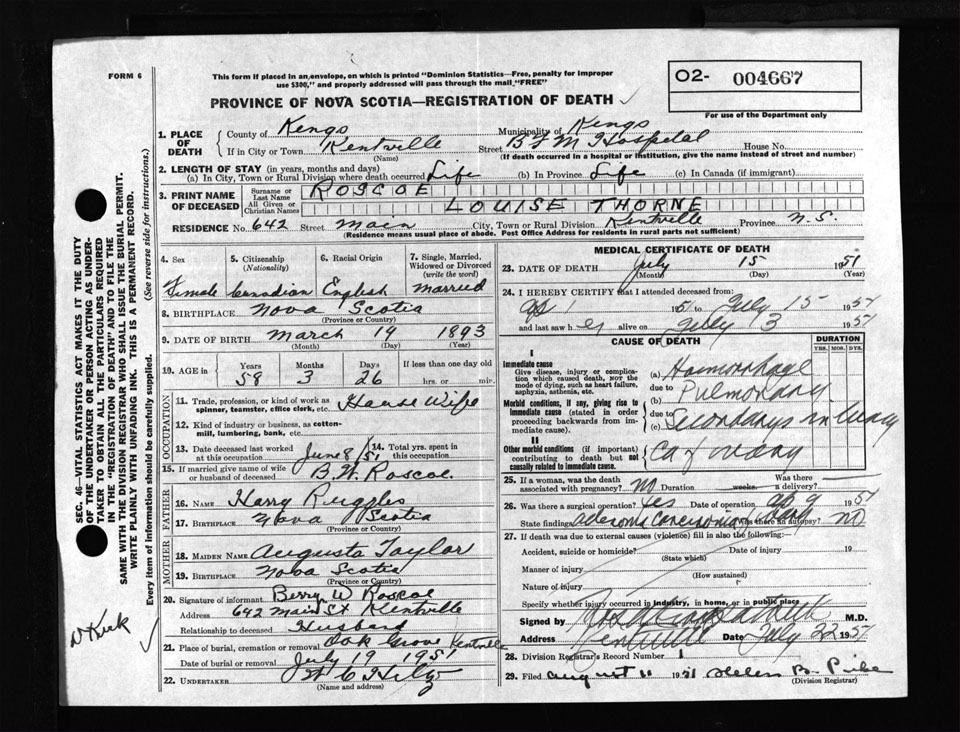 FORM 6
This form if placed in an envelope, on which is printed "Dominion Statistics—Free, penalty for improper
use $300," and properly addressed will pass through the mail "FREE"
O2- 004667
For use of the Department only
PROVINCE OF NOVA SCOTIA—REGISTRATION OF DEATH
1. PLACE OF DEATH
County of Kings Municipality of Kings
If in City or Town Kentville Street B F M Hospital House No.
(Name) (If death occurred in a hospital or institution, give the name instead of street and number)
2. LENGTH OF STAY (in years, months and days)
(a) In City, Town or Rural Division where death occurred Life (b) In Province Life (c) In Canada (if immigrant)
3. PRINT NAME OF DECEASED
Surname or Last Name ROSCOE
All Given or Christian Names LOUISE THORNE
RESIDENCE No. 642 Street Main City, Town or Rural Division Kentville Province N.S.
(Residence means usual place of abode. Post Office Address for residents in rural parts not sufficient)
4. Sex Female
5. Citizenship (Nationality) Canadian
6. Racial Origin English
7. Single, Married, Widowed or Divorced (write the word) Married
8. BIRTHPLACE Nova Scotia
(Province or Country)
9. DATE OF BIRTH March 19 1893
(Month) (Day) (Year)
10. AGE in Years Months Days If less than one day old
58 3 26 hrs. or min.
OCCUPATION
11. Trade, profession, or kind of work as
spinner, teamster, office clerk, etc. House Wife
12. Kind of industry or business, as cotton-
mill, lumbering, bank, etc.
13. Date deceased last worked at this occupation June 8/51
14. Total yrs. spent in this occupation
15. If married give name of wife or husband of deceased B. W. Roscoe.
FATHER
16. NAME Harry Ruggles
17. BIRTHPLACE Nova Scotia
(Province or Country)
MOTHER
18. MAIDEN NAME Augusta Taylor
19. BIRTHPLACE Nova Scotia
(Province or Country)
20. Signature of informant Berry W Roscoe
Address 642 Main St Kentville
Relationship to deceased Husband
21. Place of burial, cremation or removal Oak Grove Kentville
Date of burial or removal July 19 1951
22. UNDERTAKER W C Hiltz
(Name and address)
MEDICAL CERTIFICATE OF DEATH
23. DATE OF DEATH July 15 1951
(Month) (Day) (Year)
24. I HEREBY CERTIFY that I attended deceased from:
Ap 1 1951 July 15 1951
and last saw her alive on July 3 1951
CAUSE OF DEATH
DURATION
YRS. MOS. DYS.
I
Immediate cause
Give disease, injury or complication which caused death, not the mode of dying, such as heart failure, asphyxia, asthenia, etc.
(a) Haemorrhage
due to Pulmonary
Morbid conditions, if any, giving rise to immediate cause (stated in order proceeding backwards from immediate cause).
due to
(c) Secondarys in lung
II
Other morbid conditions (if important) contributing to death but not causally related to immediate cause.
Ca of ovary
25. If a woman, was the death associated with pregnancy? No Duration weeks. Was there a delivery?
26. Was there a surgical operation? yes Date of operation Ap 9 1951
State findings Adenoma Carcinoma Was there an autopsy? NO
27. If death was due to external causes (violence) fill in also the following:
Accident, suicide or homicide? Date of injury 19
(State which)
Manner of injury
(How sustained)
Nature of injury
Specify whether injury occurred in industry, in home, or in public place
Signed by M.D.
Address Kentville Date July 22 1951
28. Division Registrar's Record Number 1
29. Filed August 11 1951 Helen B. Pike
(Division Registrar)
SEC. 46—VITAL STATISTICS ACT MAKES IT THE DUTY
OF THE UNDERTAKER OR PERSON ACTING AS UNDER-
TAKER TO OBTAIN ALL THE PARTICULARS REQUIRED
IN THE "REGISTRATION OF DEATH" AND TO FILE THE
SAME WITH THE DIVISION REGISTRAR WHO SHALL ISSUE THE BURIAL PERMIT.
WRITE PLAINLY WITH UNFADING INK. THIS IS A PERMANENT RECORD.
Every item of information should be carefully supplied. (See reverse side for instructions.)